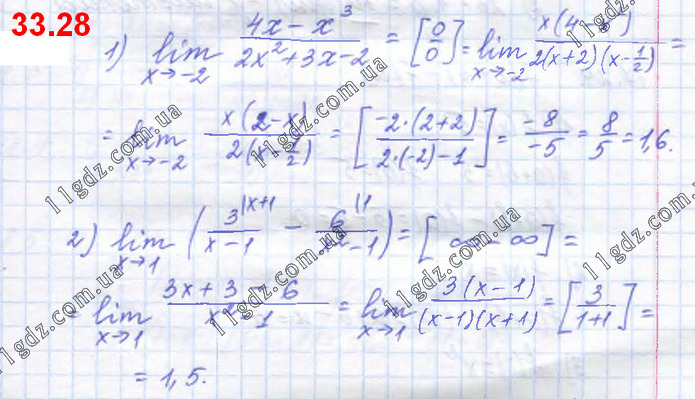 33.28
1) lim x→-2 (4x - x³)/(2x² + 3x - 2) = [0/0] = lim x→-2 x(4 - )/(2(x+2)(x - 1/2)) =
= lim x→-2 x(2-x)/(2(x - 1/2)) = [-2·(2+2)/(2·(-2)-1)] = -8/-5 = 8/5 = 1,6.
2) lim x→1 (3^{|x+1}/(x-1) - 6^{|1}/(x²-1)) = [∞ - ∞] =
= lim x→1 (3x + 3 - 6)/(x² - 1) = lim x→1 3(x-1)/((x-1)(x+1)) = [3/(1+1)] =
= 1,5.
11gdz.com.ua
11gdz.com.ua
11gdz.com.ua
11gdz.com.ua
11gdz.com.ua
11gdz.com.ua